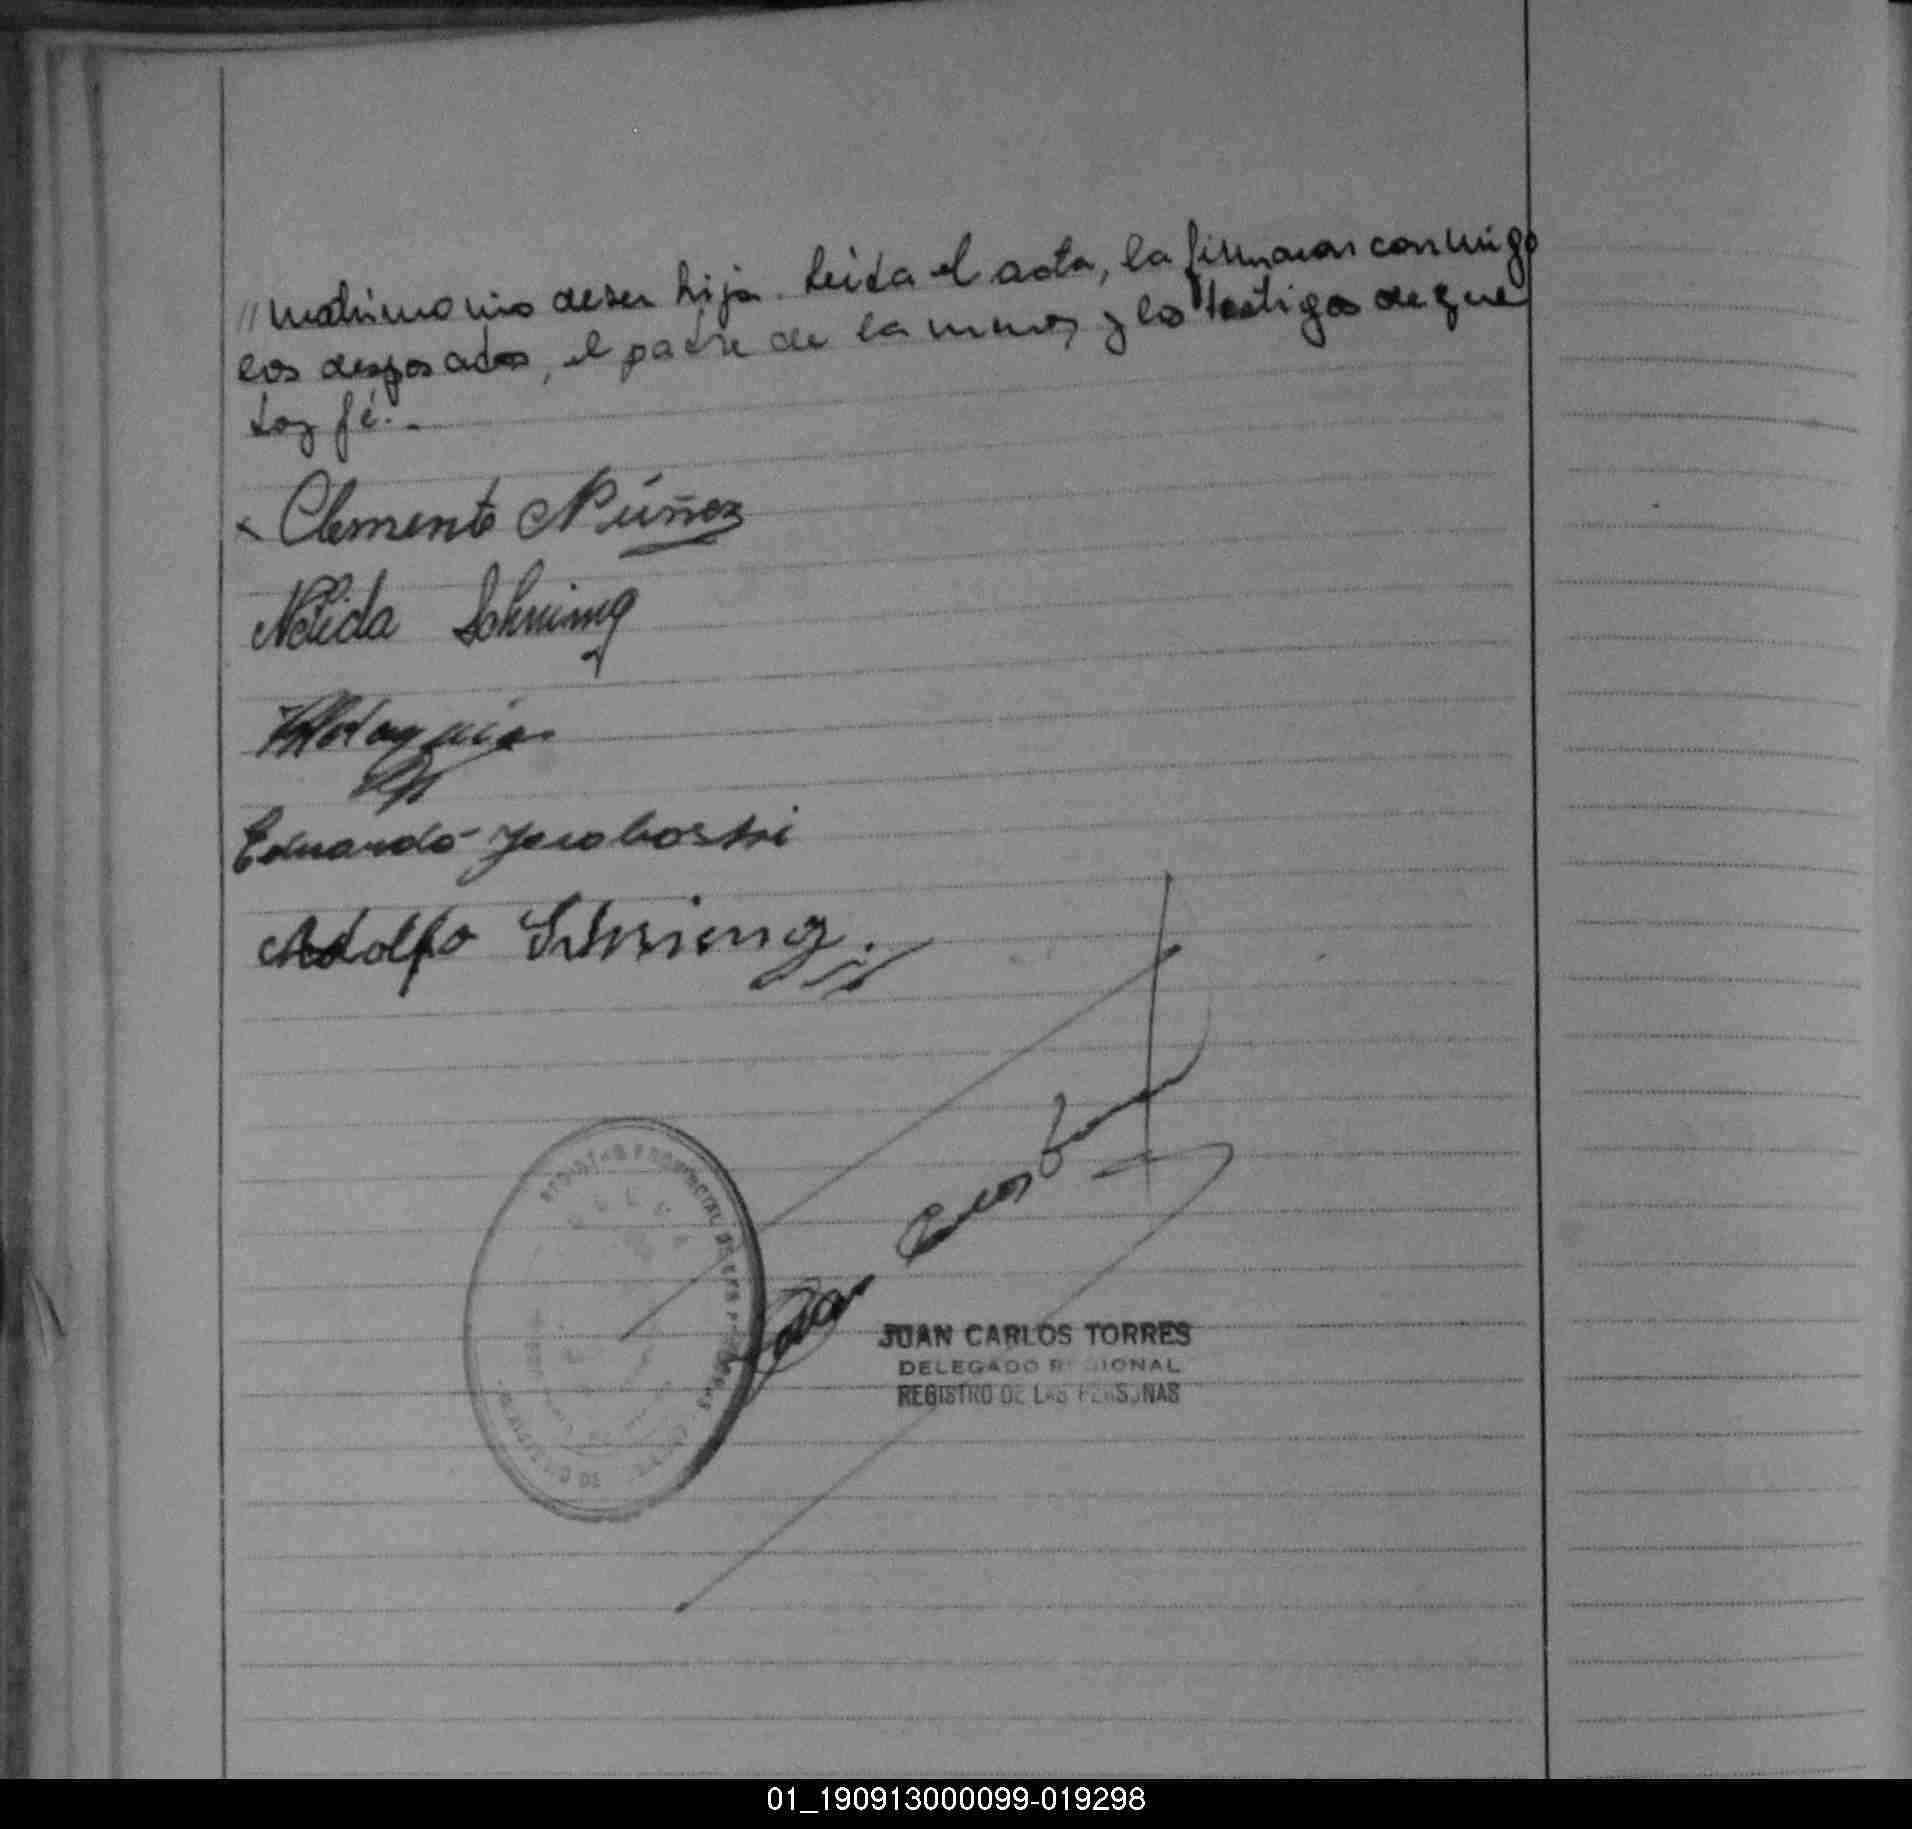 // matrimonio de su hija. Leída el acta, la firmaron conmigo
los desposados, el padre de la menor y los testigos de que
doy fé.-
x Clemente Núñez
Nélida Schning
Eduardo Jacoboski
Adolfo Schning.
Juan Carlos Torres
REGISTRO PROVINCIAL DE LAS PERSONAS
JUAN CARLOS TORRES
DELEGADO REGIONAL
REGISTRO DE LAS PERSONAS
01_190913000099-019298